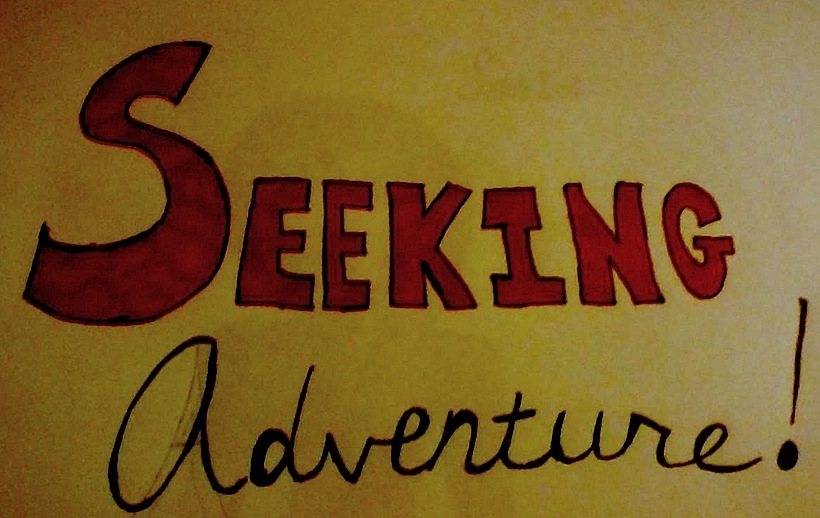 SEEKING
Adventure!